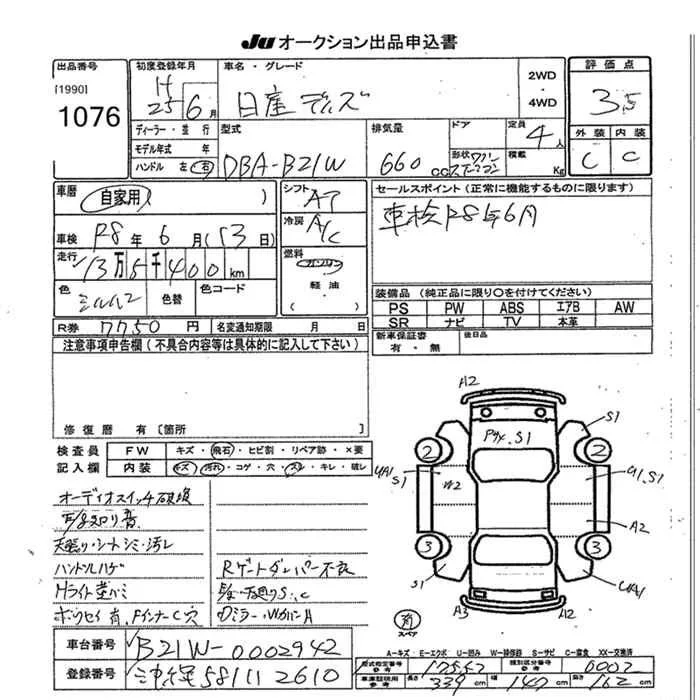 JU オークション出品申込書
出品番号
[1990]
1076
初度登録年月
H
25 6 月
車名・グレード
日産 デイズ
2WD
・
4WD
評価点
3.5
ディーラー・並行
モデル年式 年
ハンドル 左 右
型式
DBA-B21W
排気量
660 cc
ドア
形状
定員
4 人
積載
Kg
外装 内装
C C
車歴
自家用 )
シフト
AT
セールスポイント(正常に機能するものに限ります)
車検R8年6月
車検 R8 年 6 月 (13 日)
冷房
A/C
走行
13万5千400km
燃料
ガソリン
軽油
( )
色
色替
色コード
装備品(純正品に限り○を付けてください)
PS PW ABS エアB AW
SR ナビ TV 本革
R券 7750 円
名変通知期限 月 日
新車保証書
有・無
後日品
注意事項申告欄(不具合内容等は具体的に記入して下さい)
修復歴 有〔箇所 〕
検査員
記入欄
FW キズ・飛石・ヒビ割・リペア跡・×要
内装 キズ・汚れ・コゲ・穴・スレ・キレ・破レ
オーディオスイッチ破損
天張り・シートシミ・汚レ
ハンドルハゲ
Rゲートダンパー不良
Hライト黄バミ
A2
S1
S1
2 2
UA1
S1
W2
U1.S1
A2
3 3
S1
UA1
A3
A2
スペア
車台番号 B21W-0002942
登録番号 581 11 2610
A-キズ E-エクボ U-凹み W-補修跡 S-サビ C-腐食 XX-交換済
型式指定番号
参考
17557
類別区分番号
参考
0002
車庫証明用
参考
長さ 339 cm 幅 147 cm 高さ 162 cm